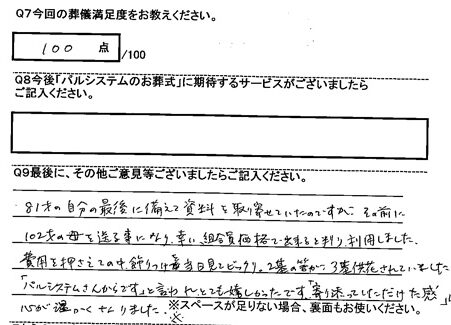 Q7今回の葬儀満足度をお教えください。
100 点 /100
Q8今後「パルシステムのお葬式」に期待するサービスがございましたら
ご記入ください。
Q9最後に、その他ご意見等ございましたらご記入ください。
81才の自分の最後に備えて資料を取り寄せていたのですが、その前に
102才の母を送る事になり、幸い組合員価格で出来ると判り利用しました。
費用を押さえての中、飾りつけ当日見てビックリ。2基の筈が3基供花されていました
「パルシステムさんからです」と言われとても嬉しかったです「寄り添っていただけた感」
心が温かくなりました。※スペースが足りない場合、裏面もお使いください。
※